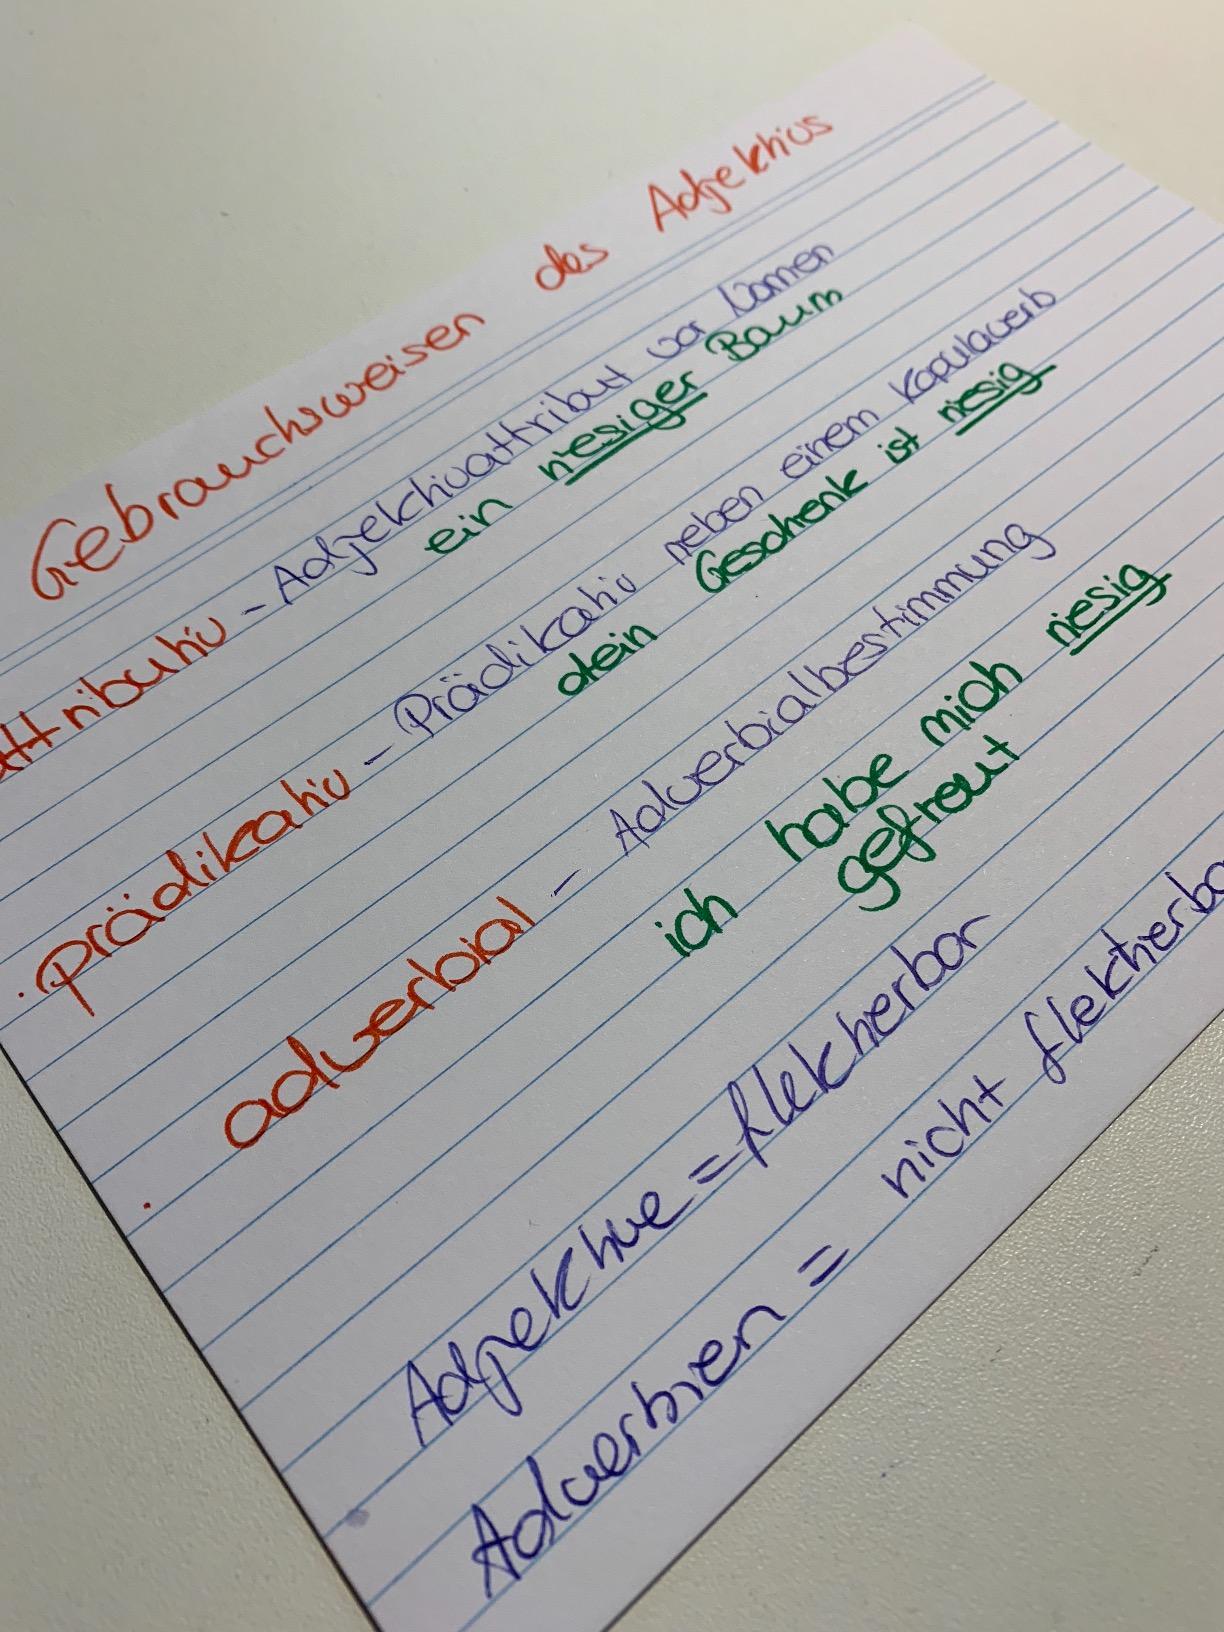 Gebrauchsweisen des Adjektivs
attributiv - Adjektivattribut vor Nomen
ein riesiger Baum
· prädikativ - Prädikativ neben einem Kopulaverb
dein Geschenk ist riesig
· adverbial - Adverbialbestimmung
ich habe mich riesig
gefreut
Adjektive = flektierbar
Adverbien = nicht flektierba